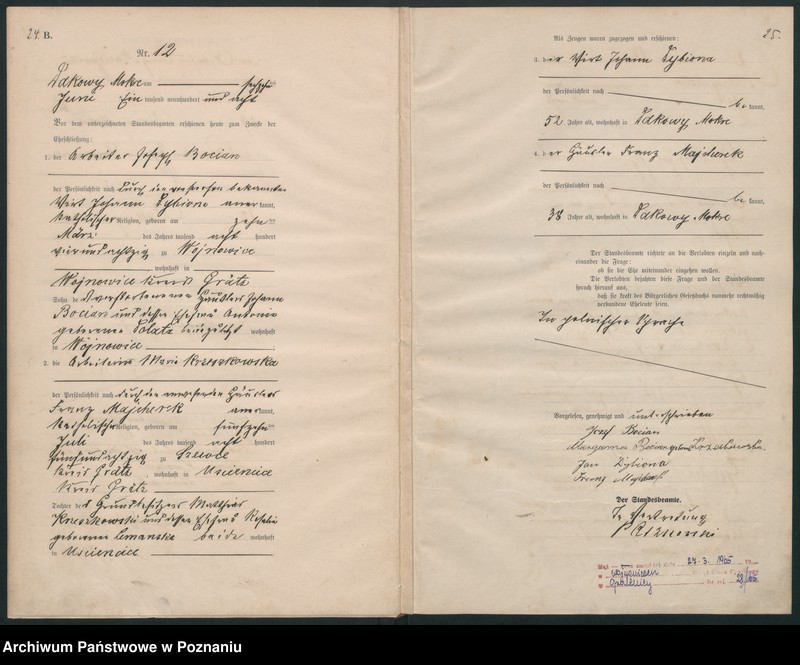 24. B.
Nr. 12
Ptkowy Mokre am sechzehn ten
Juni Ein tausend neunhundert und acht
Vor dem unterzeichneten Standesbeamten erschienen heute zum Zwecke der
Eheschließung:
1. der Arbeiter Joseph Bocian
der Persönlichkeit nach durch den bekannten
Wirt Johann Dybiona aner kannt,
katholischer Religion, geboren am zehn ten
März des Jahres tausend acht hundert
vierundachtzig zu Wojnowice
wohnhaft in
Wojnowice Kreis Grätz
Sohn des verstorbenen Häuslers Johann
Bocian und dessen Ehefrau Antonie
geborenen wohnhaft
in Wojnowice
2. die Arbeiterin Marie Krzeszkowska
der Persönlichkeit nach durch den anwesenden Häusler
Franz Majcherek aner kannt,
katholischer Religion, geboren am fünfzehn ten
Juli des Jahres tausend acht hundert
fünfundachtzig zu
Kreis Grätz, wohnhaft in Usciencice
Kreis Grätz
Tochter des Grundbesitzers Matthias
Krzeszkowski und dessen Ehefrau Rosalie
geborenen Lemanska beide wohnhaft
in Usciencice
25.
Als Zeugen waren zugezogen und erschienen:
3. der Wirt Johann Dybiona
der Persönlichkeit nach
be kannt,
52 Jahre alt, wohnhaft in Ptkowy Mokre
4. der Häusler Franz Majcherek
der Persönlichkeit nach
be kannt,
38 Jahre alt, wohnhaft in Ptkowy Mokre
Der Standesbeamte richtete an die Verlobten einzeln und nach-
einander die Frage:
ob sie die Ehe miteinander eingehen wollen.
Die Verlobten bejahten diese Frage und der Standesbeamte
sprach hierauf aus,
daß sie kraft des Bürgerlichen Gesetzbuchs nunmehr rechtmäßig
verbundene Eheleute seien.
In polnischer Sprache
Vorgelesen, genehmigt und unterschrieben
Jozef Bocian
Bocian
Jan Dybiona
Franz
Der Standesbeamte.
In Vertretung
27.3. 1965
Archiwum Państwowe w Poznaniu